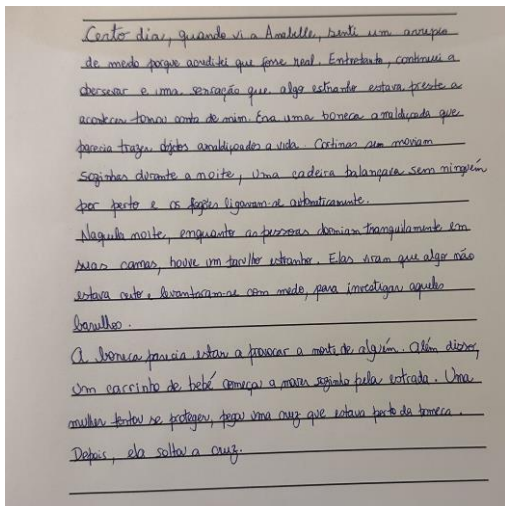 Certo dia, quando vi a Anabelle, senti um arrepio
de medo porque acreditei que fosse real. Entretanto, continuei a
obersevar e uma sensação que algo estranho estava preste a
acontecer tomou conta de mim. Era uma boneca amaldiçoada que
parecia trazer objetos amaldiçoados a vida. Cortinas sem moviam
sozinhas durante a noite, uma cadeira balançava sem ninguém
por perto e os fogões ligavam-se automaticamente.
Naquela noite, enquanto as pessoas dormiam tranquilamente em
suas camas, houve um barulho estranho. Elas viram que algo não
estava certo, levantaram-se com medo, para investigar aqueles
barulhos.
A boneca parecia estar a provocar a morte de alguém. Além disso,
um carrinho de bebé começa a mover sozinho pela estrada. Uma
mulher tentou se proteger, pegou uma cruz que estava perto da boneca.
Depois, ela soltou a cruz.